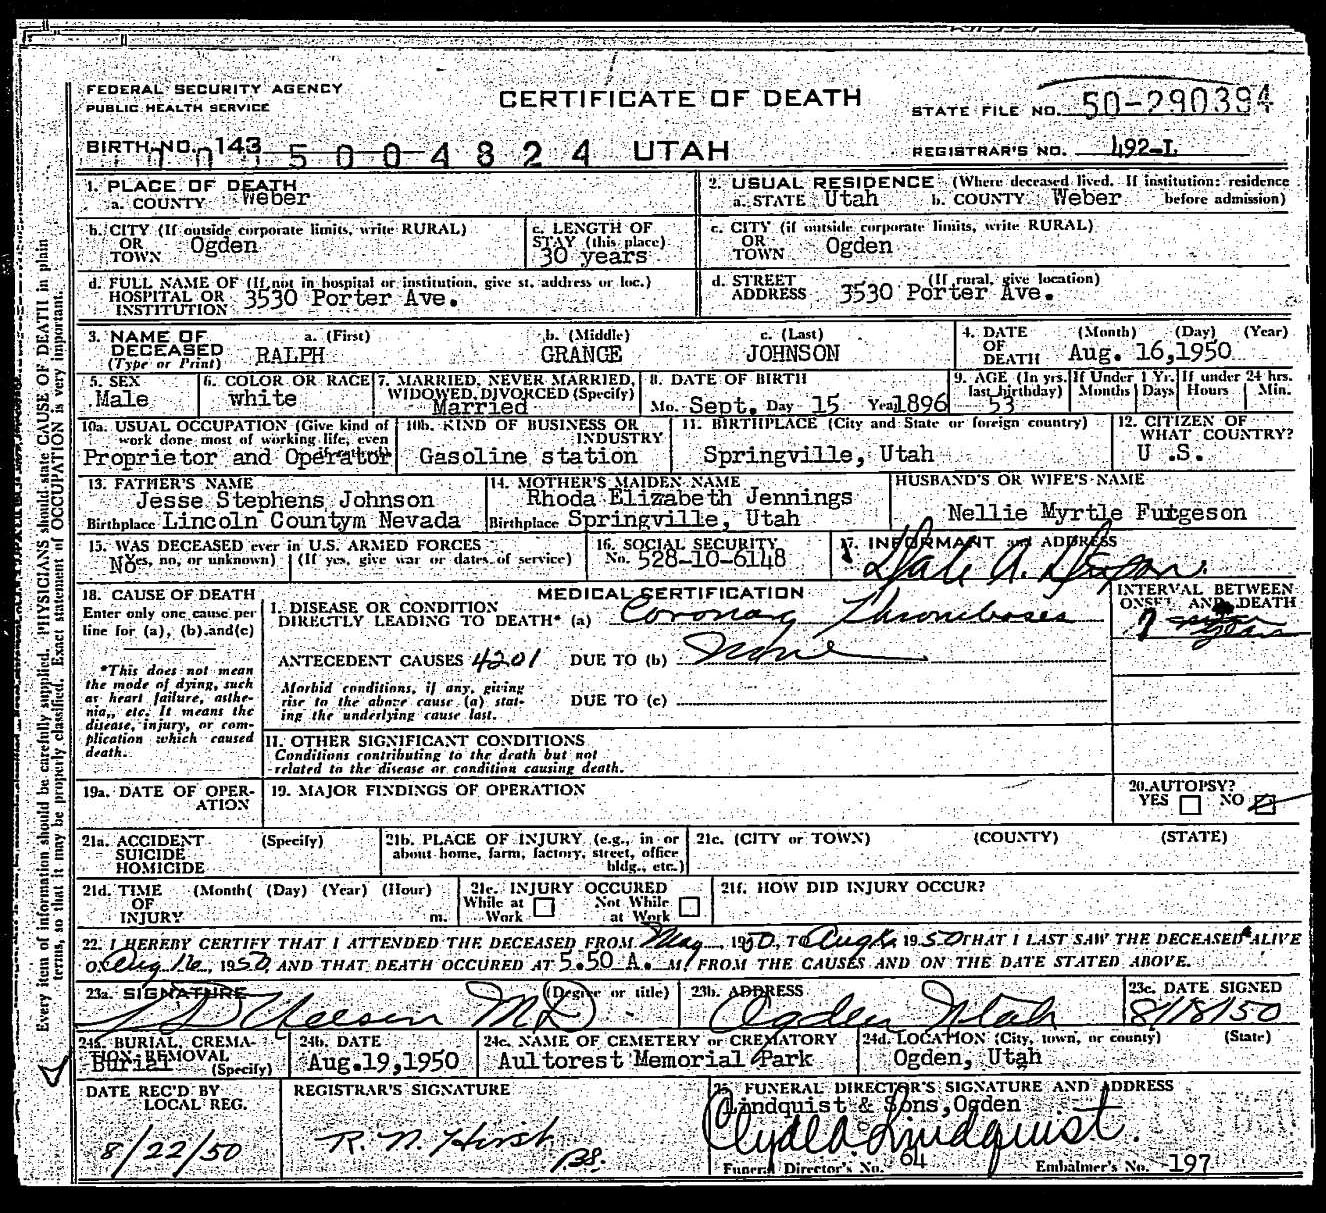 FEDERAL SECURITY AGENCY
PUBLIC HEALTH SERVICE
CERTIFICATE OF DEATH
STATE FILE NO. 50-290394
BIRTH NO. 143
5004824 UTAH
REGISTRAR'S NO. 492-L
1. PLACE OF DEATH
a. COUNTY Weber
2. USUAL RESIDENCE (Where deceased lived. If institution: residence before admission)
a. STATE Utah b. COUNTY Weber
b. CITY (If outside corporate limits, write RURAL)
OR TOWN Ogden
c. LENGTH OF STAY (this place)
30 years
c. CITY (if outside corporate limits, write RURAL)
OR TOWN Ogden
d. FULL NAME OF (If not in hospital or institution, give st. address or loc.)
HOSPITAL OR INSTITUTION 3530 Porter Ave.
d. STREET ADDRESS (If rural, give location)
3530 Porter Ave.
3. NAME OF DECEASED (Type or Print)
a. (First) b. (Middle) c. (Last)
RALPH GRANGE JOHNSON
4. DATE OF DEATH (Month) (Day) (Year)
Aug. 16,1950
5. SEX
Male
6. COLOR OR RACE
white
7. MARRIED, NEVER MARRIED, WIDOWED, DIVORCED (Specify)
Married
8. DATE OF BIRTH
Mo. Sept. Day 15 Year 1896
9. AGE (In yrs. last birthday)
53
If Under 1 Yr. Months Days
If under 24 hrs. Hours Min.
10a. USUAL OCCUPATION (Give kind of work done most of working life, even
Proprietor and Operator
10b. KIND OF BUSINESS OR INDUSTRY
Gasoline station
11. BIRTHPLACE (City and State or foreign country)
Springville, Utah
12. CITIZEN OF WHAT COUNTRY?
U .S.
13. FATHER'S NAME
Jesse Stephens Johnson
Birthplace Lincoln Countym Nevada
14. MOTHER'S MAIDEN NAME
Rhoda Elizabeth Jennings
Birthplace Springville, Utah
HUSBAND'S OR WIFE'S NAME
Nellie Myrtle Furgeson
15. WAS DECEASED ever in U.S. ARMED FORCES
(Yes, no, or unknown) (If yes, give war or dates of service)
No
16. SOCIAL SECURITY
No. 528-10-6148
17. INFORMANT and ADDRESS
18. CAUSE OF DEATH
Enter only one cause per line for (a), (b) and (c)
*This does not mean the mode of dying, such as heart failure, asthenia, etc. It means the disease, injury, or complication which caused death.
MEDICAL CERTIFICATION
INTERVAL BETWEEN ONSET AND DEATH
I. DISEASE OR CONDITION DIRECTLY LEADING TO DEATH* (a) Coronary Thromboses
? years
ANTECEDENT CAUSES 4201 DUE TO (b) None
Morbid conditions, if any, giving rise to the above cause (a) stating the underlying cause last.
DUE TO (c)
II. OTHER SIGNIFICANT CONDITIONS
Conditions contributing to the death but not related to the disease or condition causing death.
19a. DATE OF OPERATION
19. MAJOR FINDINGS OF OPERATION
20. AUTOPSY?
YES NO
21a. ACCIDENT SUICIDE HOMICIDE (Specify)
21b. PLACE OF INJURY (e.g., in or about home, farm, factory, street, office bldg., etc.)
21c. (CITY or TOWN) (COUNTY) (STATE)
21d. TIME OF INJURY (Month( (Day) (Year) (Hour) m.
21e. INJURY OCCURED
While at Work Not While at Work
21f. HOW DID INJURY OCCUR?
22. I HEREBY CERTIFY THAT I ATTENDED THE DECEASED FROM May, 1950, TO Aug 1950 THAT I LAST SAW THE DECEASED ALIVE
O. Aug 16, 1950 AND THAT DEATH OCCURED AT 5.50 A. M. FROM THE CAUSES AND ON THE DATE STATED ABOVE.
23a. SIGNATURE (Degree or title)
MD
23b. ADDRESS
Ogden Utah
23c. DATE SIGNED
8/18/50
24a. BURIAL, CREMATION REMOVAL (Specify)
Burial
24b. DATE
Aug.19,1950
24c. NAME OF CEMETERY or CREMATORY
Aultorest Memorial Park
24d. LOCATION (City, town, or county) (State)
Ogden, Utah
DATE REC'D BY LOCAL REG.
8/22/50
REGISTRAR'S SIGNATURE
R. N. Hirst
25. FUNERAL DIRECTOR'S SIGNATURE AND ADDRESS
Lindquist & Sons,Ogden
Clyde A. Lindquist.
Funeral Director's No. 64 Embalmer's No. 197
Every item of information should be carefully supplied. PHYSICIANS should state CAUSE OF DEATH in plain
terms, so that it may be properly classified. Exact statement of OCCUPATION is very important.